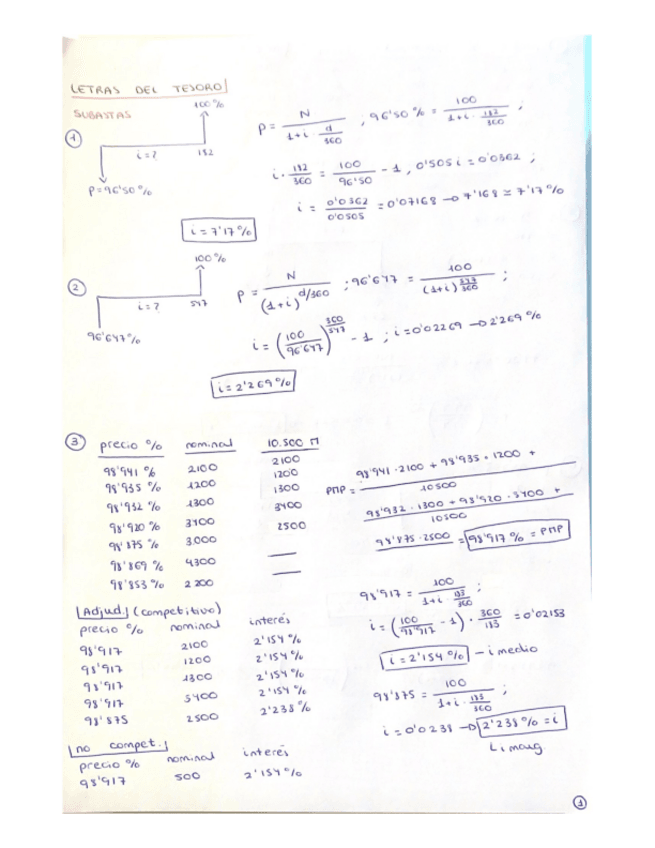 LETRAS DEL TESORO
SUBASTAS
100 %
① i = ? 182
P = 96'50 %
P = N / (1 + i · d/360) ; 96'50 % = 100 / (1 + i · 182/360) ;
i · 182/360 = 100/96'50 - 1 , 0'505 i = 0'0362 ;
i = 0'0362/0'0505 = 0'07168 → 7'168 ≃ 7'17 %
i = 7'17 %
100 %
② i = ? 547
96'647 %
P = N / (1+i)^(d/360) ; 96'647 = 100 / (1+i)^(547/360) ;
i = (100/96'647)^(360/547) - 1 ; i = 0'02269 → 2'269 %
i = 2'269 %
③ precio % nominal 10.500 M
98'941 % 2100 2100
98'935 % 1200 1200
98'932 % 1300 1300
98'920 % 3400 3400
98'875 % 3.000 2500
98'869 % 4300 —
98'853 % 2200 —
PMP = 98'941 · 2100 + 98'935 · 1200 +
10500
98'932 · 1300 + 98'920 · 3400 +
10500
98'875 · 2500 = 98'917 % = PMP
Adjud. (competitivo)
precio % nominal interés
98'917 2100 2'154 %
98'917 1200 2'154 %
98'917 1300 2'154 %
98'917 3400 2'154 %
98'875 2500 2'238 %
98'917 = 100 / (1 + i · 183/360) ;
i = (100/98'917 - 1) · 360/183 = 0'02153
i = 2'154 % - i medio
98'875 = 100 / (1 + i · 183/360) ;
i = 0'0238 → 2'238 % = i
i marg
no compet.
precio % nominal interés
98'917 500 2'154 %
1